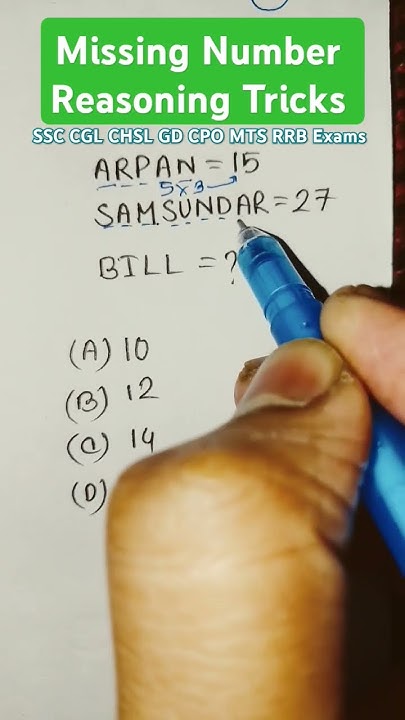 Missing Number
Reasoning Tricks
SSC CGL CHSL GD CPO MTS RRB Exams
ARPAN = 15
5×3
SAMSUNDAR = 27
BILL = ?
(A) 10
(B) 12
(C) 14
(D)